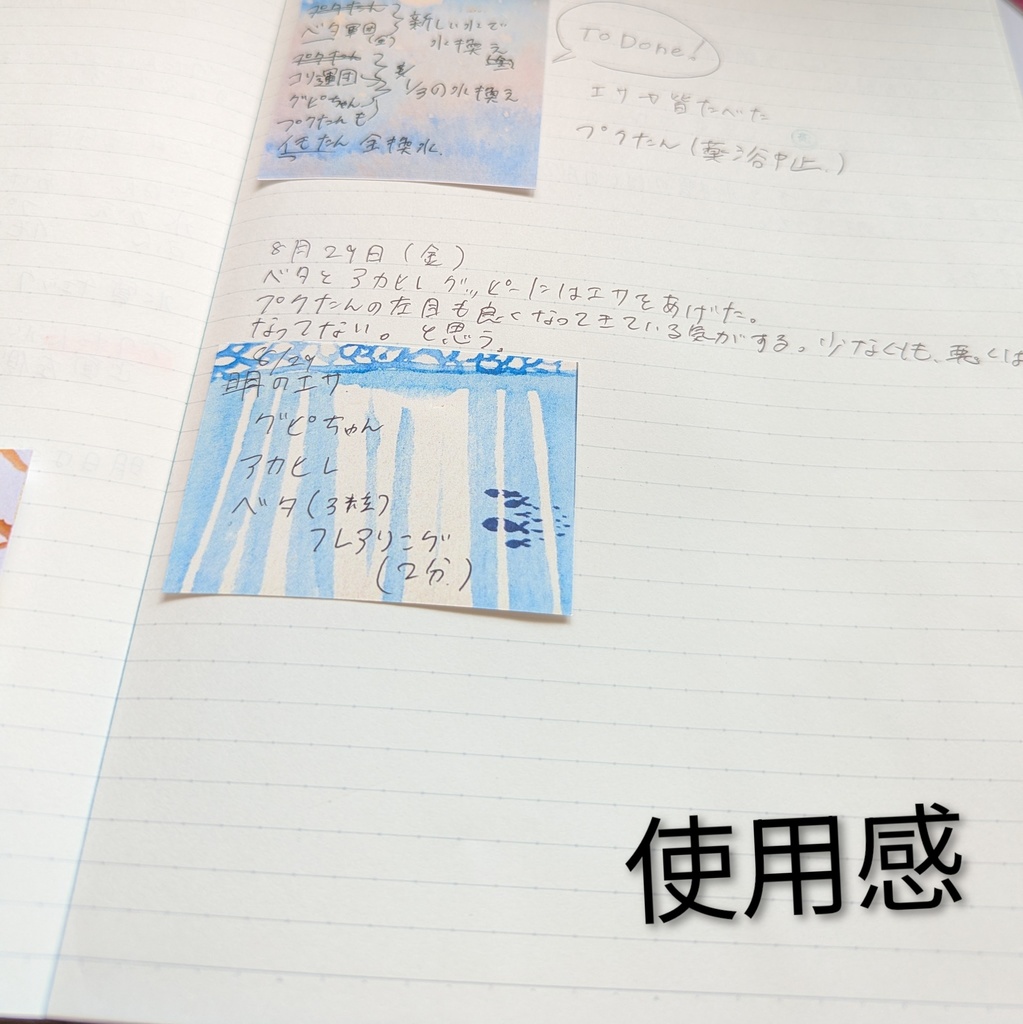 プクたん
ベタ軍団(全)
新しい水で
水換え
コリ軍団
1/3の水換え
グピちゃん
プクたんも
イモたん 全換水.
To Done!
エサカ皆たべた
プクたん(薬浴中止.)
8月29日(金)
ベタとアカヒレグッピーにはエサをあげた。
プクたんの左目も良くなってきている気がする。少なくも、悪くは
なってない。と思う。
8/29
明のエサ
グピちゃん
アカヒレ
ベタ(3粒)
フレアリング
(2分.)
使用感